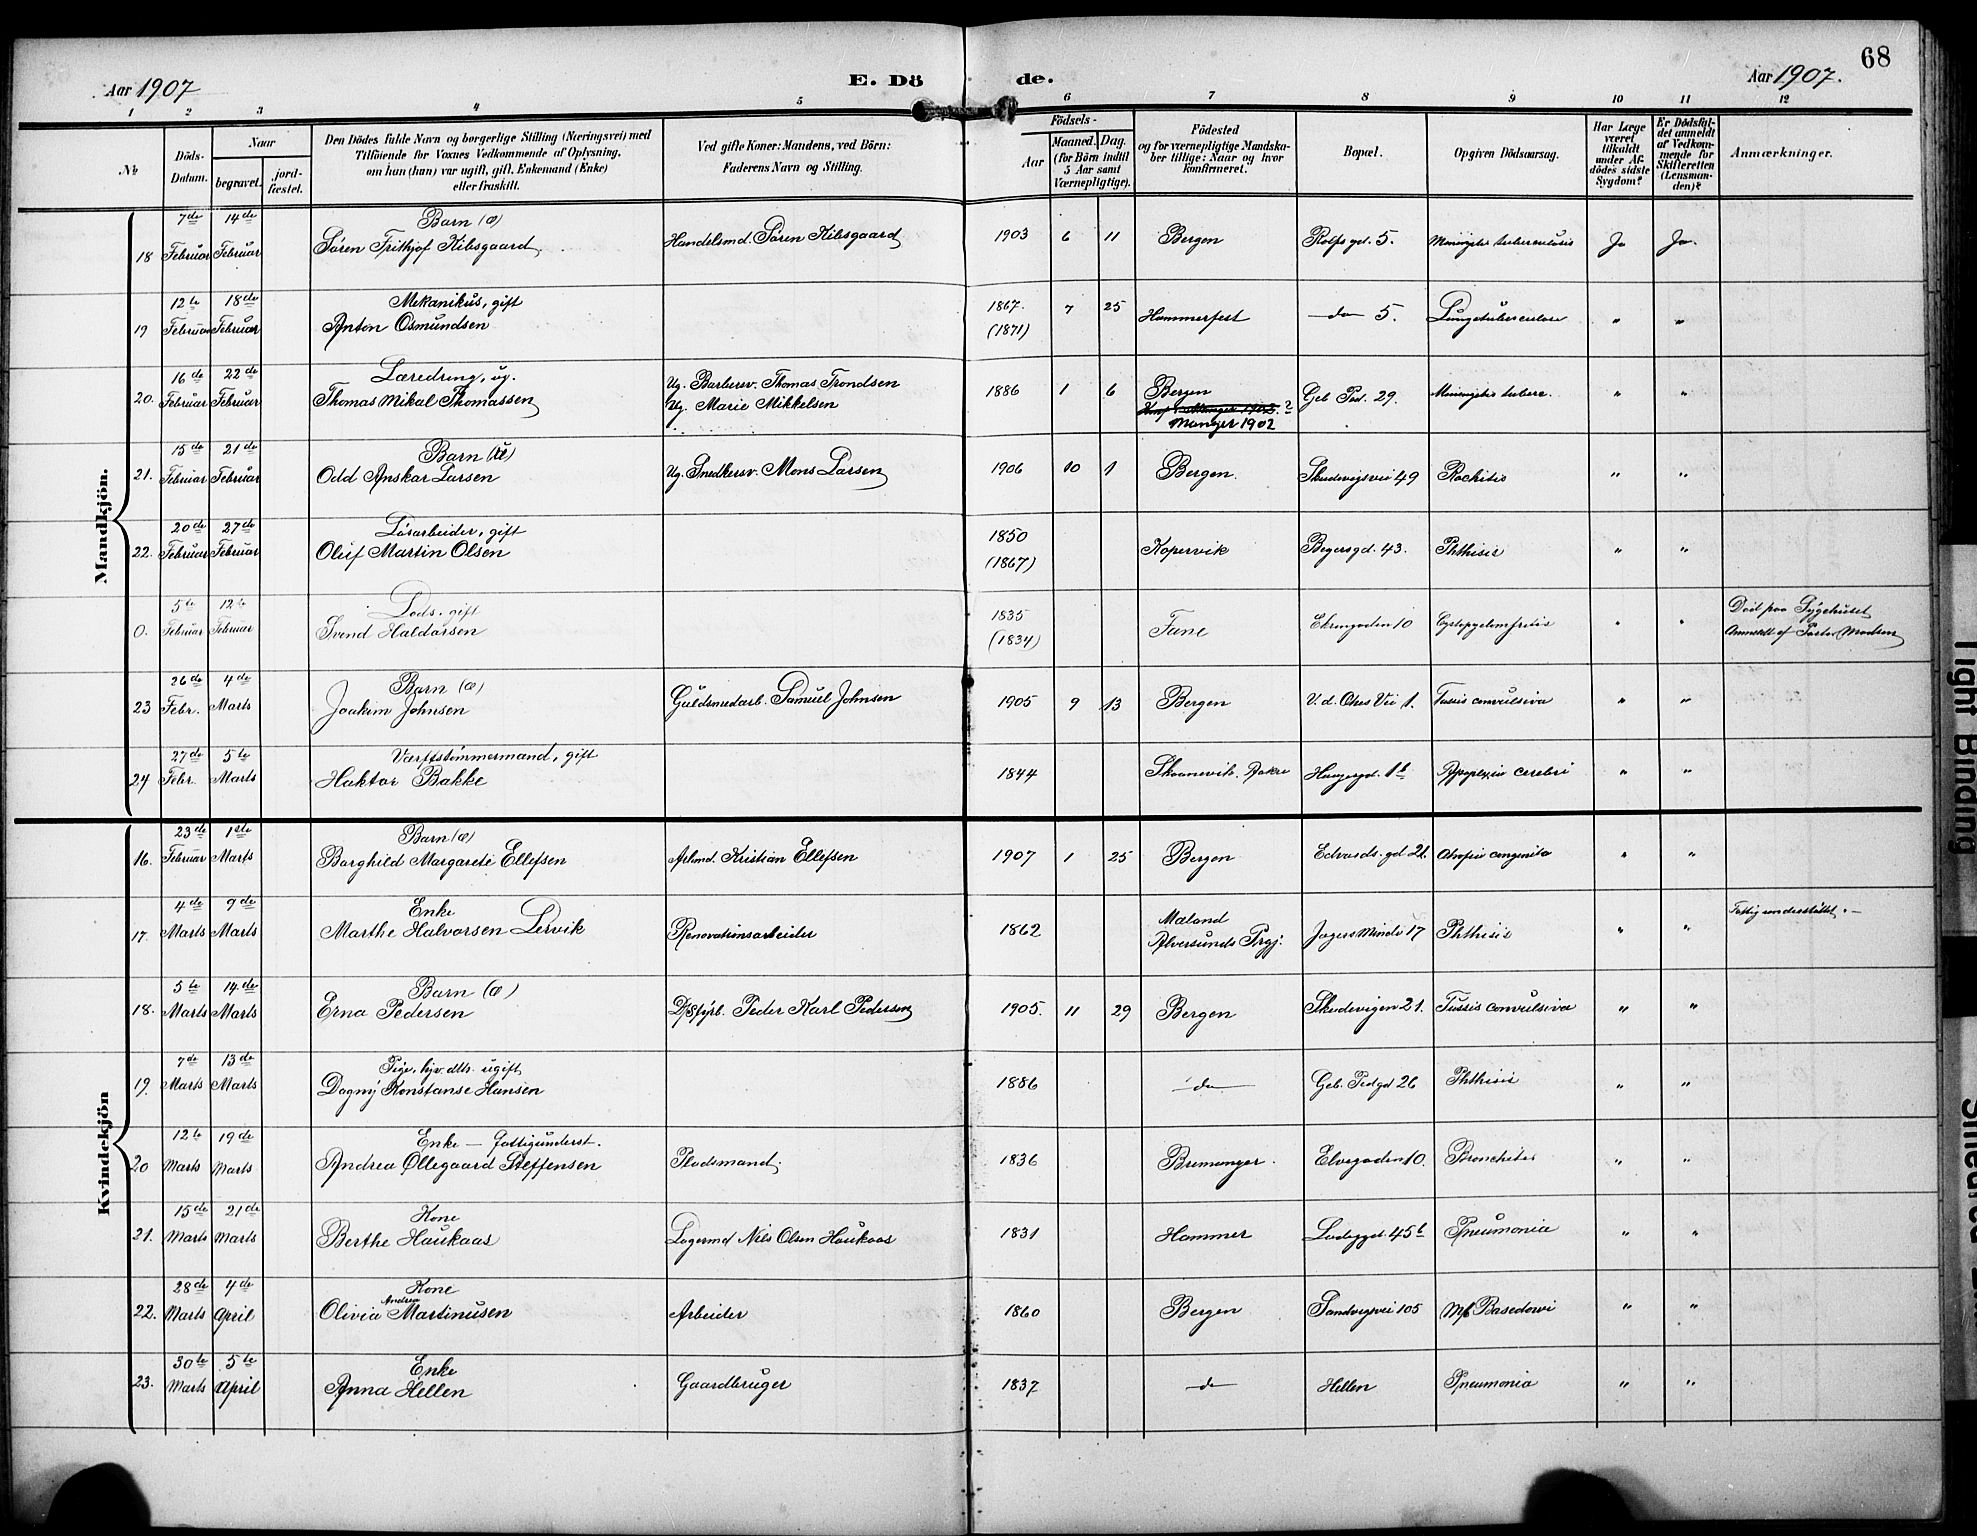 68
Aar 1907
E. Dö
de.
Aar 1907.
1 2 3 4 5 6 7 8 9 10 11 12
No
Döds-Datum.
Naar
begravet.
jord-fæstet.
Den Dödes fulde Navn og borgerlige Stilling (Næringsvei) med
Tilföiende for Voxnes Vedkommende af Oplysning,
om han (hun) var ugift, gift, Enkemand (Enke)
eller fraskilt.
Ved gifte Koner: Mandens, ved Börn:
Faderens Navn og Stilling.
Födsels-
Aar
Maaned. Dag.
(for Börn indtil
5 Aar samt
Værnepligtige).
Födested
og for værnepligtige Mandska-
ber tillige: Naar og hvor
konfirmeret.
Bopæl.
Opgiven Dödsaarsag.
Har Læge
været
tilkaldt
under Af-
dödes sidste
Sygdom?
Er Dödsfal-
det anmeldt
af Vedkom-
mende for
Skifteretten
(Lensman-
den)?
Anmærkninger.
Mandkjön.
7de 14de Barn (æ)
18 Februar Februar Sören Frithjof Kibsgaard Handelsmd. Sören Kibsgaard 1903 6 11 Bergen Rolfsgd. 5. Meningitis tuberculosis Ja Ja.
12te 18de Mekanikus, gift
19 Februar Februar Anton Osmundsen 1867. (1871) 7 25 Hammerfest —do— 5. Lungetuberculose " "
16de 22de Læredreng, ug.
20. Februar Februar Thomas Mikal Thomassen Ug. Barbersv. Thomas Trondsen
Ug. Marie Mikkelsen 1886 1 6 Bergen Geb Ped. 29. Meningitis tuberc. " "
Manger 1902
15de 21de Barn (uæ)
21. Februar Februar Odd Anskar Larsen Ug. Snedkersv. Mons Larsen 1906 10 1 Bergen. Skudevigsvei 49 Rachitis " "
20de 27de Lösarbeider, gift
22. Februar Februar Oluf Martin Olsen 1850 (1867) Kopervik 43. Phthisis " "
5te 12te gift
0. Februar Februar Svend Haldorsen 1835 (1834) Fane 10 " " Död paa Sygehuset
Anmeldt af Pastor Madsen
26de 4de Barn (æ)
23 Febr. Marts Joakim Johnsen Guldsmedarb. Samuel Johnsen 1905 9 13 Bergen V. d. Vei 1. Tussis convulsiva " "
27de 5te Værftstömmermand, gift
24 Febr. Marts Haktor Bakke 1844 Skaanevik Apoplexia cerebri " "
Kvindekjön
23de 1ste Barn (æ)
16. Februar Marts Borghild Margarete Ellefsen Arbmd. Kristian Ellefsen 1907 1 25 Bergen Edvards. gd 21. Atrofia congenita " "
4de 9de Enke Fattigunderstöttet. —
17. Marts Marts Marthe Halvorsen Lervik Renovationsarbeider 1862 Mæland
Alversunds Prgj. Jægers Minde 17 Phthisis " "
5te 14de Barn (æ)
18. Marts Marts Erna Pedersen D/Sfyrb. Peder Karl Pedersen 1905. 11 29 Bergen Skudevigen 21. Tussis convulsiva " "
7de 13de Pige, hjv. dtt. ugift
19. Marts Marts Dagny Konstanse Hansen 1886 —do— Geb. Pedgd 26 Phthisis " "
12te 19de Enke — fattigunderst.
20 Marts Marts Andrea Ollegaard Steffensen Pladsmand. 1836 Bremanger. Elvegaden 10. Bronchitis " "
15de 21de Kone
21. Marts Marts Berthe Haukaas Lagermd Nils Olsen Haukaas 1831 Hammer Ladeggd. 45b Pneumonia " "
28de 4de Kone
22. Marts April Olivia Andrea Martinusen Arbeider 1860 Bergen Sandvigsvei 105 Mb Basedowi " "
30te 5te Enke
23. Marts April Anna Hellen Gaardbruger 1837 —do— Hellen Pneumonia " "
Tight Binding